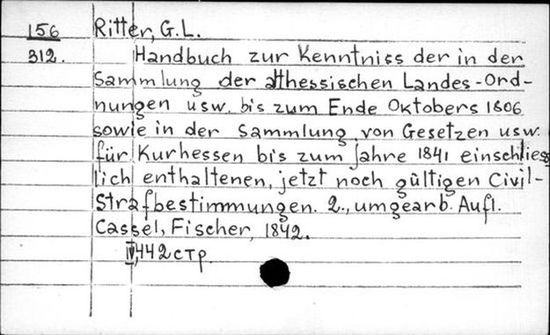 156 Ritter, G.L.
312. Handbuch zur Kenntniss der in der
Sammlung der althessischen Landes-Ord-
nungen usw. bis zum Ende Oktobers 1806
sowie in der Sammlung von Gesetzen usw.
für Kurhessen bis zum Jahre 1841 einschliess
lich enthaltenen, jetzt noch gültigen Civil-
Strafbestimmungen. 2., umgearb. Aufl.
Cassel, Fischer, 1842.
IV, 442 стр.